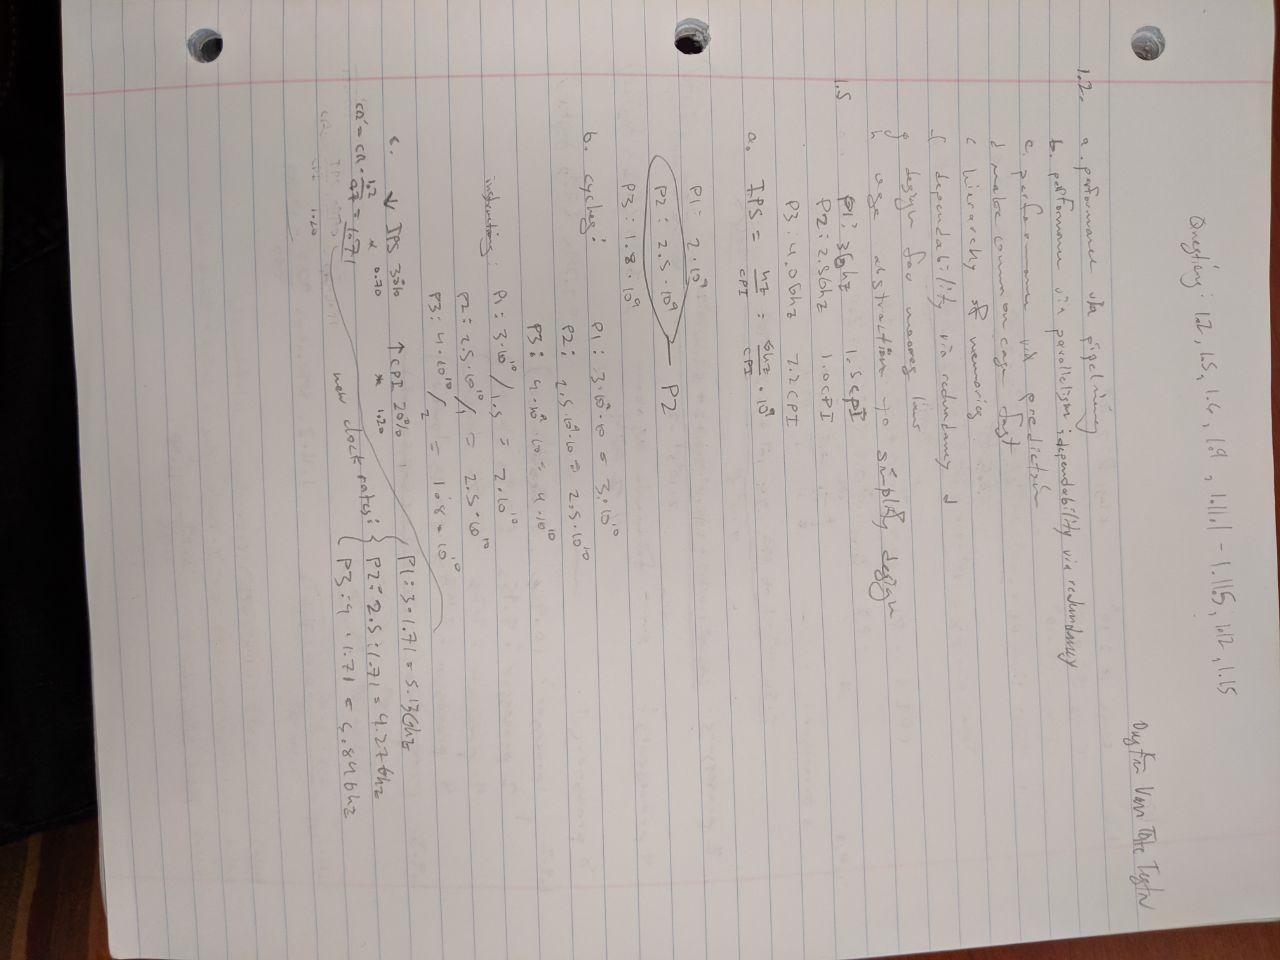 Questions: 1.2, 1.5, 1.6, 1.9, 1.11.1 - 1.11.5, 1.12, 1.15
1.2. a. performance via pipelining
b. performance via parallelism; dependability via redundancy
c. performance via prediction
d make common case fast
e hierarchy of memories
f dependability via redundancy
g design for moores law
h use abstraction to simplify design
1.5 P1: 3Ghz 1.5 CPI
P2: 2.5Ghz 1.0 CPI
P3: 4.0Ghz 2.2 CPI
a. IPS = hz/CPI = Ghz/CPI · 10⁹
P1: 2·10⁹
P2: 2.5·10⁹ — P2
P3: 1.8·10⁹
b. cycles: P1: 3·10⁹·10 = 3·10¹⁰
P2: 2.5·10⁹·10 = 2.5·10¹⁰
P3: 4·10⁹·10 = 4·10¹⁰
instructions: P1: 3·10¹⁰/1.5 = 2·10¹⁰
P2: 2.5·10¹⁰/1 = 2.5·10¹⁰
P3: 4·10¹⁰/2 = 1.8·10¹⁰
c. ↓ 30% ↑ CPI 20%
* 0.70 * 1.20
CR' = CR · 1.2/0.7 = 1.71
new clock rates: P1: 3·1.71 = 5.13Ghz
P2: 2.5·1.71 = 4.27Ghz
P3: 4·1.71 = 6.84Ghz